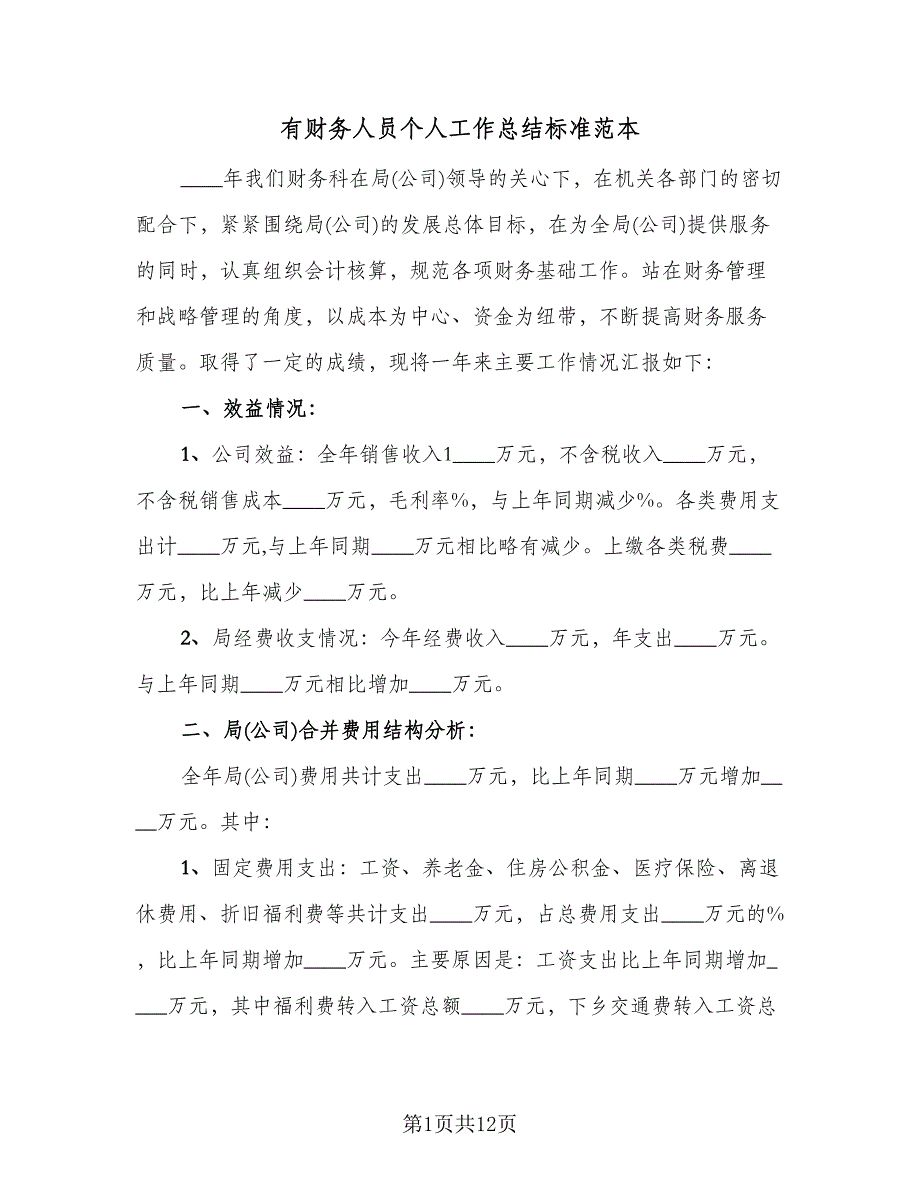 有财务人员个人工作总结标准范本
____年我们财务科在局(公司)领导的关心下，在机关各部门的密切
配合下，紧紧围绕局(公司)的发展总体目标，在为全局(公司)提供服务
的同时，认真组织会计核算，规范各项财务基础工作。站在财务管理
和战略管理的角度，以成本为中心、资金为纽带，不断提高财务服务
质量。取得了一定的成绩，现将一年来主要工作情况汇报如下：
一、效益情况：
1、公司效益：全年销售收入1____万元，不含税收入____万元，
不含税销售成本____万元，毛利率%，与上年同期减少%。各类费用支
出计____万元,与上年同期____万元相比略有减少。上缴各类税费____
万元，比上年减少____万元。
2、局经费收支情况：今年经费收入____万元，年支出____万元。
与上年同期____万元相比增加____万元。
二、局(公司)合并费用结构分析：
全年局(公司)费用共计支出____万元，比上年同期____万元增加__
__万元。其中：
1、固定费用支出：工资、养老金、住房公积金、医疗保险、离退
休费用、折旧福利费等共计支出____万元，占总费用支出____万元的%
，比上年同期增加____万元。主要原因是：工资支出比上年同期增加_
___万元，其中福利费转入工资总额____万元，下乡交通费转入工资总
第1页共12页